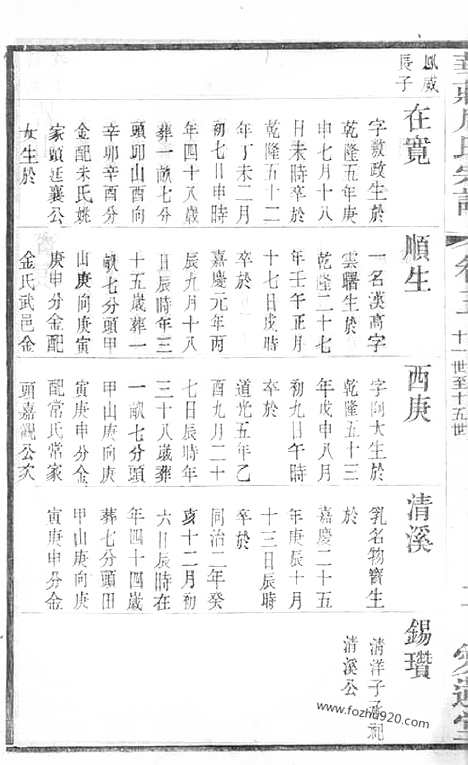 氏宗譜
十一世至十五世
鳳威
長子
在寬
字敷政生於
乾隆五年庚
申七月十八
日未時卒於
乾隆五十二
年丁未二月
初七日申時
年四十八歲
葬一畝七分
頭卯山酉向
辛卯辛酉分
金配朱氏姚
家頭廷襄公
女生於
順生
一名漢高字
雲曙生於
乾隆二十七
年壬午正月
十七日戌時
卒於
嘉慶元年丙
辰九月十八
日辰時年三
十五歲葬一
畝七分頭甲
山庚向庚寅
庚申分金配
金氏武邑金
酉庚
字向大生於
乾隆五十三
年戊申八月
初九日午時
卒於
道光五年乙
酉九月二十
七日辰時年
三十八歲葬
一畝七分頭
甲山庚向庚
寅庚申分金
配常氏常家
頭嘉觀公次
清溪
乳名物寶生
於
嘉慶二十五
年庚辰十月
十三日辰時
卒於
同治二年癸
亥十二月初
六日辰時在
年四十四歲
葬七分頭田
甲山庚向庚
寅庚申分金
錫瓚
清洋子承祀
清溪公
www.fozhu920.com